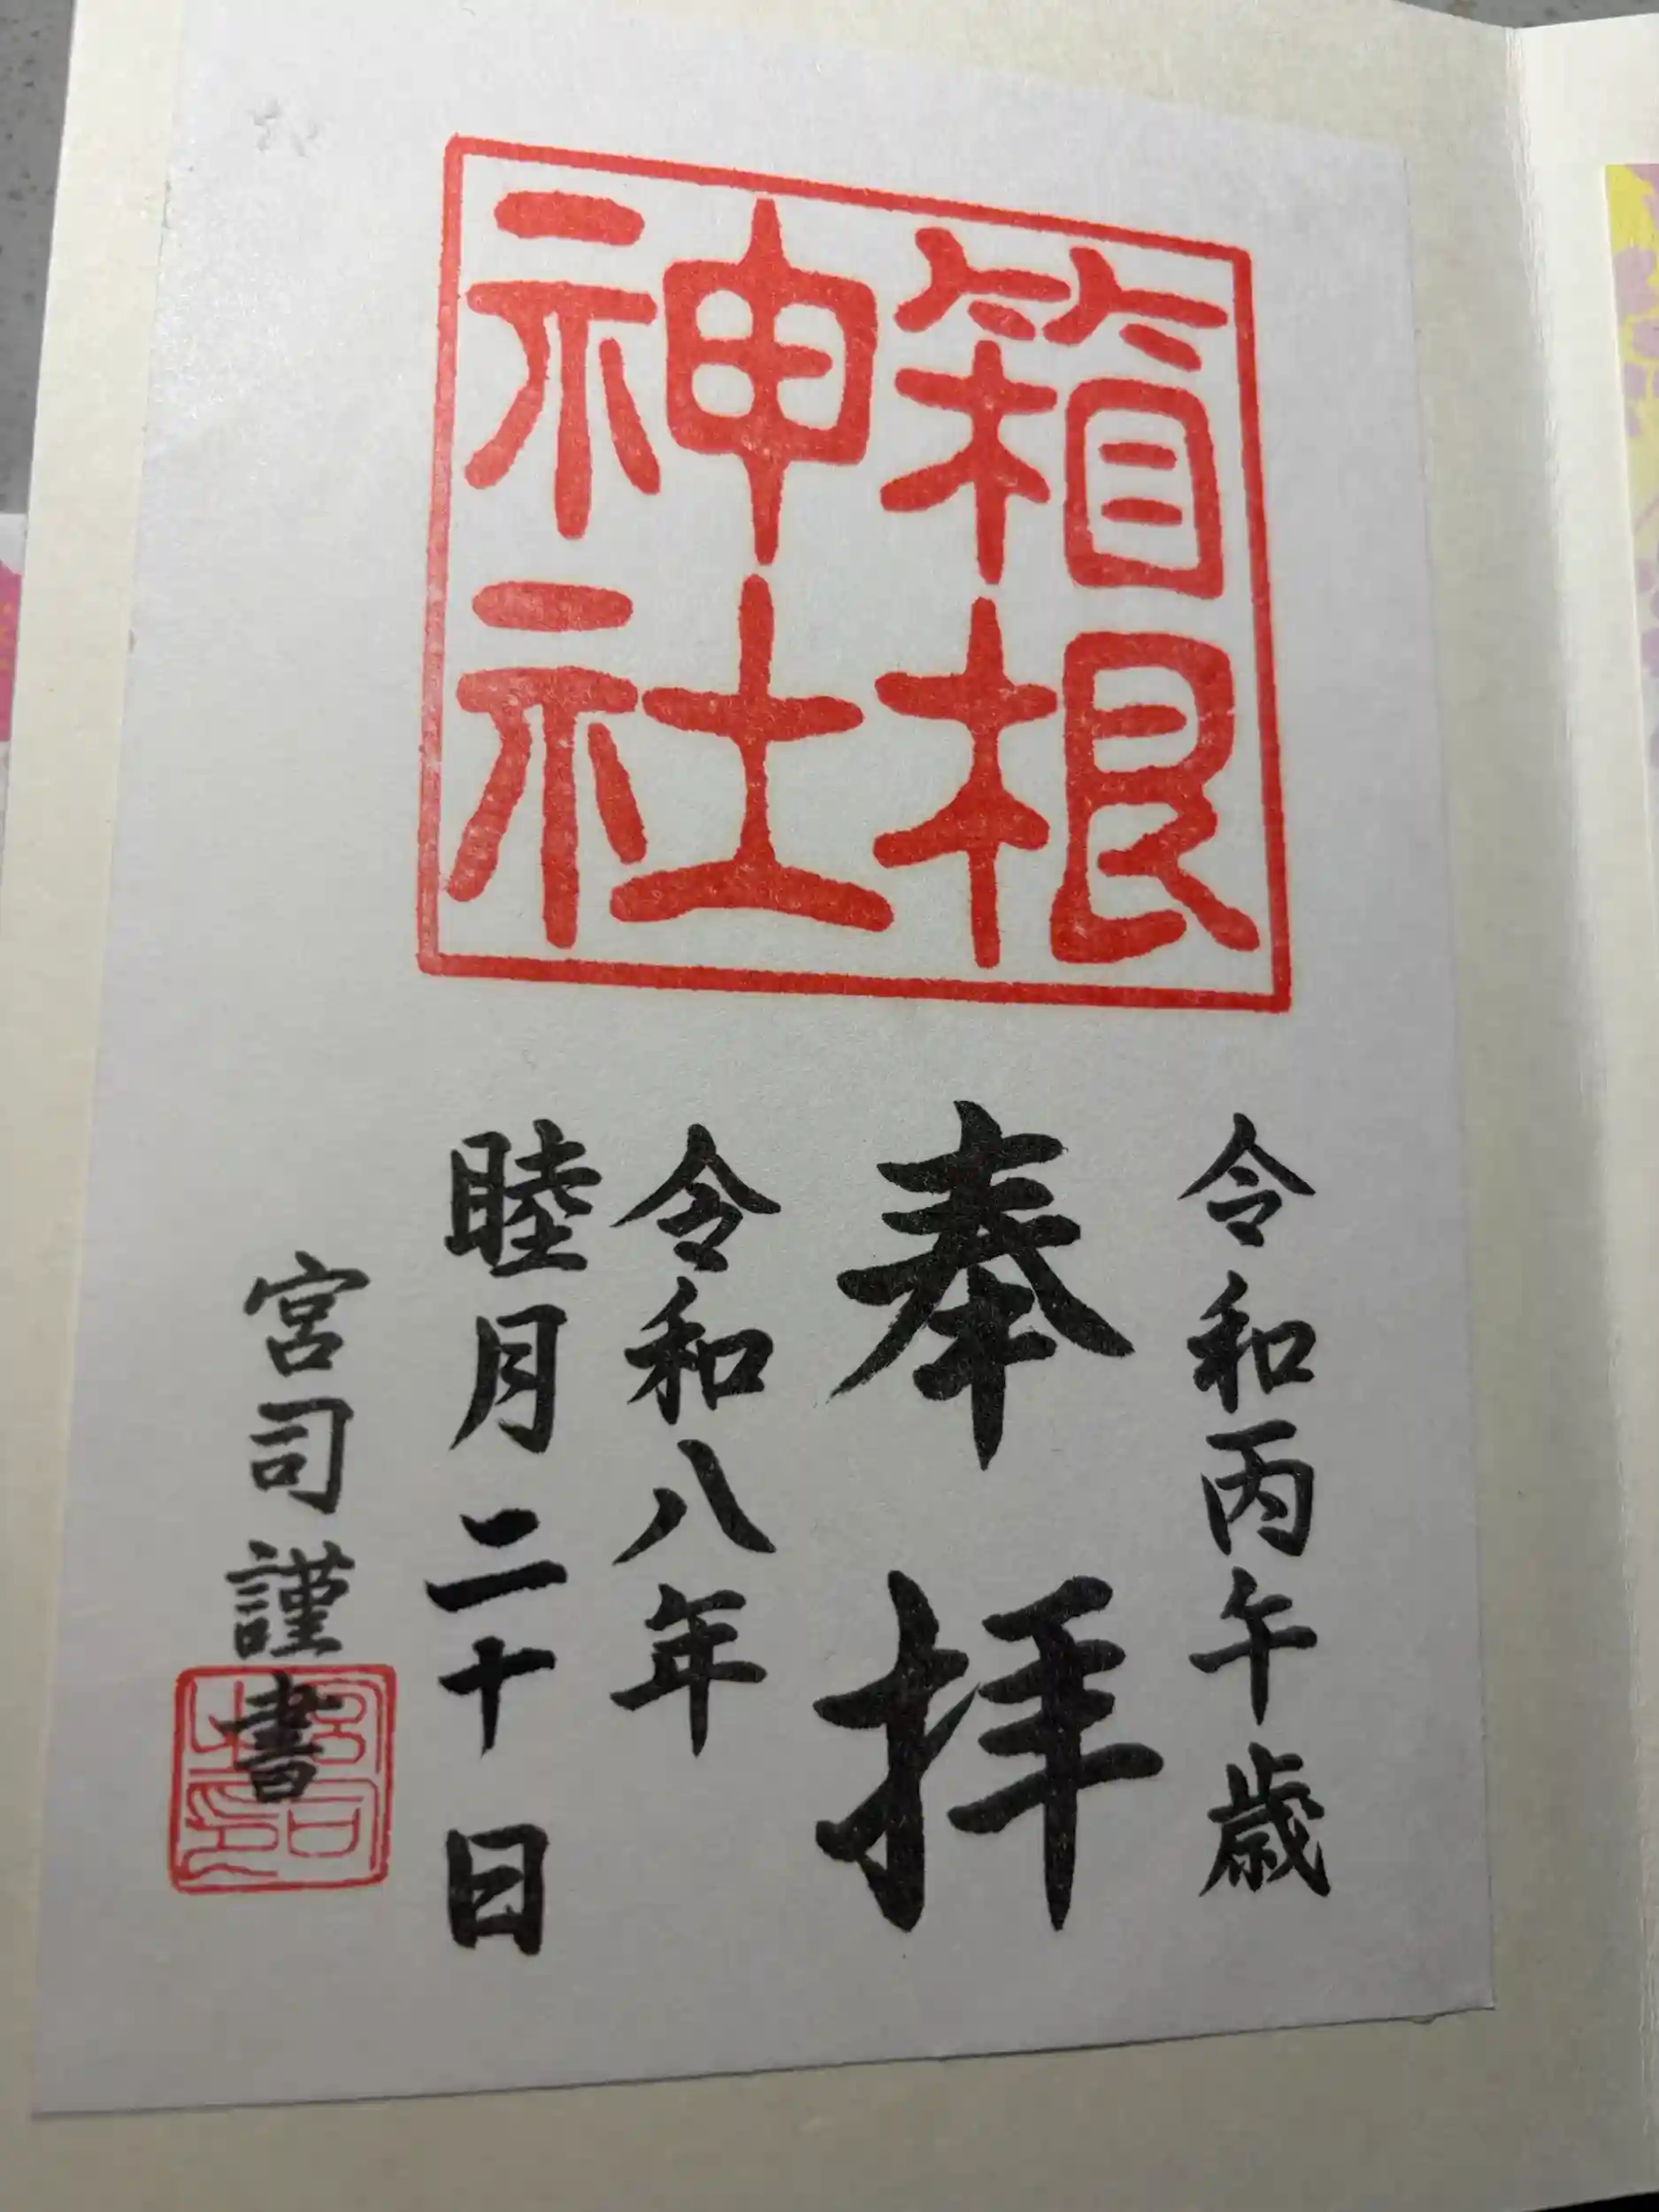 箱根
神社
令和丙午歳
奉拝
令和八年
睦月二十日
宮司謹書
宮司
之印